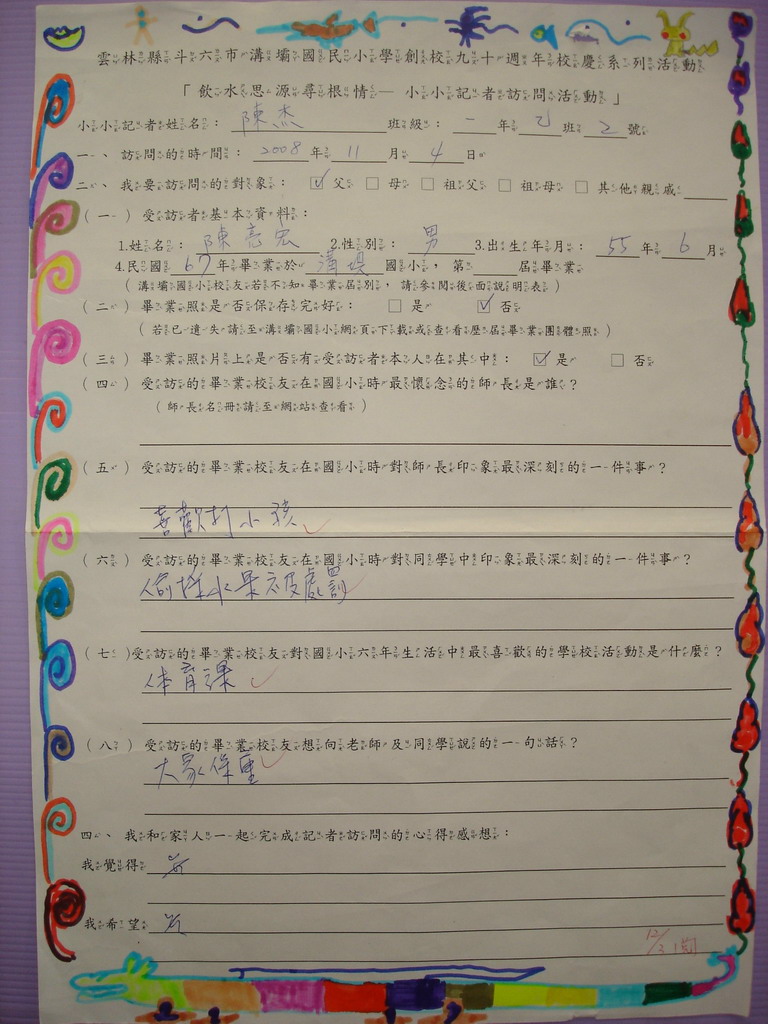 雲林縣斗六市溝壩國民小學創校九十週年校慶系列活動
「飲水思源尋根情— 小小記者訪問活動」
小小記者姓名：陳杰 班級：一年乙班2號
一、訪問的時間：2008年11月4日。
二、我要訪問的對象：☑父 □母 □祖父 □祖母 □其他親戚
（一）受訪者基本資料：
1.姓名：陳亮宏 2.性別：男 3.出生年月：55年6月
4.民國67年畢業於溝壩國小，第 屆畢業
（溝壩國小校友若不知畢業屆別，請參閱後面說明表）
（二）畢業照是否保存完好：□是 ☑否
（若已遺失請至溝壩國小網頁下載或查看歷屆畢業團體照）
（三）畢業照片上是否有受訪者本人在其中：☑是 □否
（四）受訪的畢業校友在國小時最懷念的師長是誰？
（師長名冊請至網站查看）
（五）受訪的畢業校友在國小時對師長印象最深刻的一件事？
喜歡打小孩
（六）受訪的畢業校友在國小時對同學中印象最深刻的一件事？
偷摘水果被處罰
（七）受訪的畢業校友對國小六年生活中最喜歡的學校活動是什麼？
体育課
（八）受訪的畢業校友想向老師及同學說的一句話？
大家保重
四、我和家人一起完成記者訪問的心得感想：
我覺得
我希望
12/2